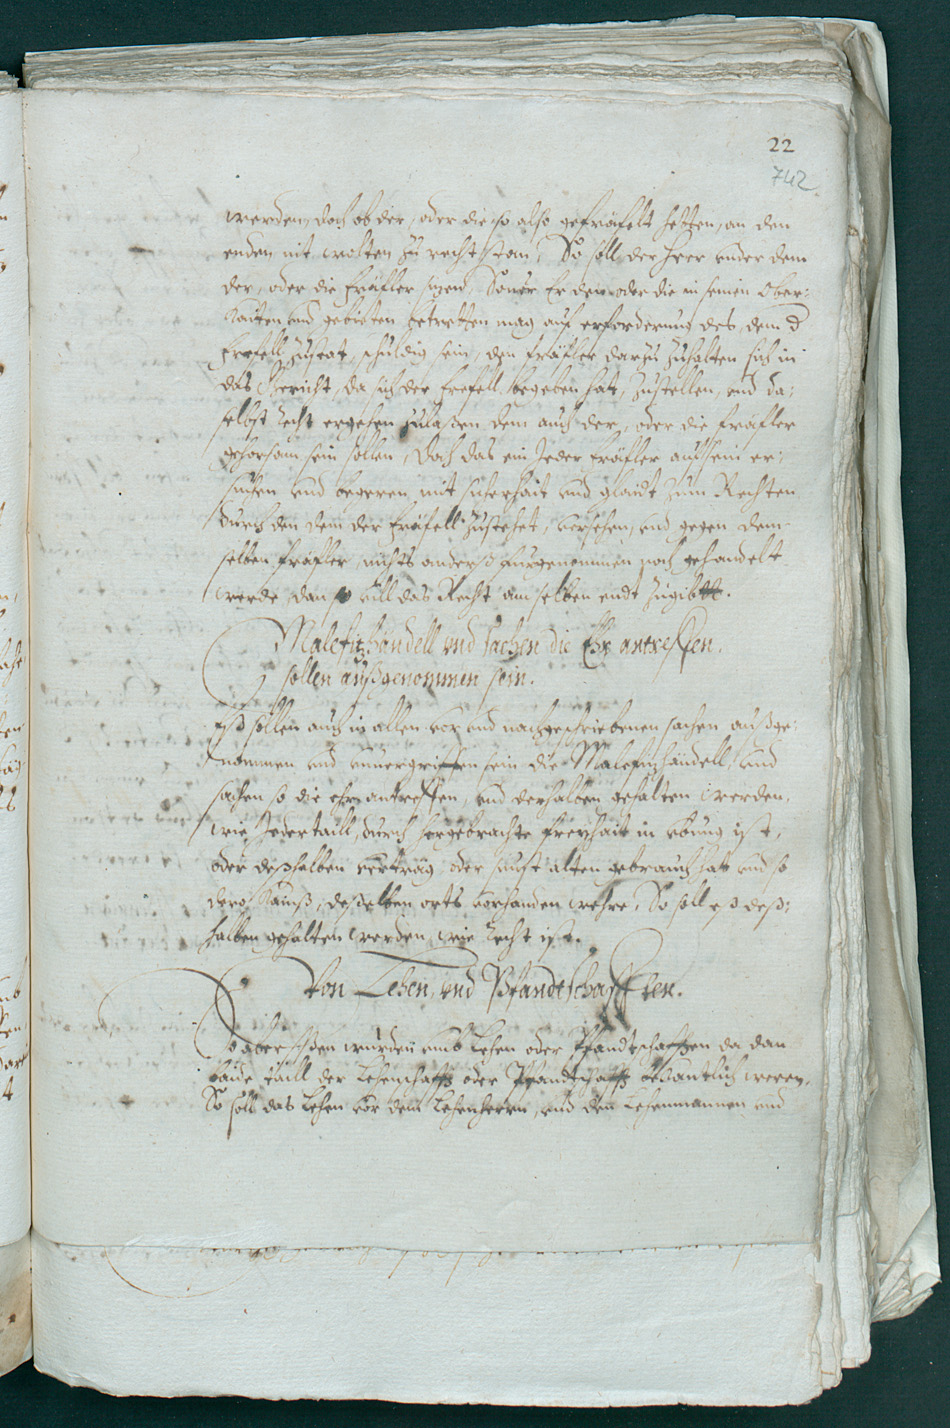 22
742
werden, doch ob der, oder die so also gefräfelt hetten, an den
enden nit wolten zu recht ston, So soll der Herr under dem
der, oder die Fräfler sizen, Souer Er den oder die in seinen Ober-
kaiten und gebieten betretten mag auf erforderung des, dem d
frefell zusteat, schuldig sein, den fräfler darzu zuhalten sich in
das Gericht, da sich der frefell begeben hat, zustellen, und da-
selbst Recht ergehen zulaßen dem auch der, oder die fräfler
gehorsam sein sollen, Doch das ein Jeder fräfler auf sein er-
suchen und begeren mit sicherhait und glaidt zum Rechten
durch den dem der fräfell zustehet, versehen, und gegen dem-
selben fräfler, nichts anderß fürgenommen noch gehandelt
werde, dan so vill das Recht am selben endt zugibtt.
Malefitzhändell und sachen die Ehr antreffen.
sollen außgenommen sein.
Eß sollen auch in allen vor und nachgeschriebenen sachen außge-
nommen und unuergriffen sein die Malefitzhändell, und
sachen so die ehr antreffen, und derhalben gehalten werden,
wie Jedertaill, durch hergebrachte freyhait in übung ist,
oder deßhalben verträg oder sunst alten gebrauch hat und so
dero kainß, deßelben orts vorhanden wehre, So soll eß deß-
halben gehalten werden, wie recht ist.
Von Lehen, und Pfandtschafften.
So aber Irthen würden umb Lehen oder Pfandtschafften da dan
baide thaill der Lehenschafft oder Pfandtschafft bekantlich weren,
So soll das Lehen vor dem Lehenherrn, und den Lehenmannen und